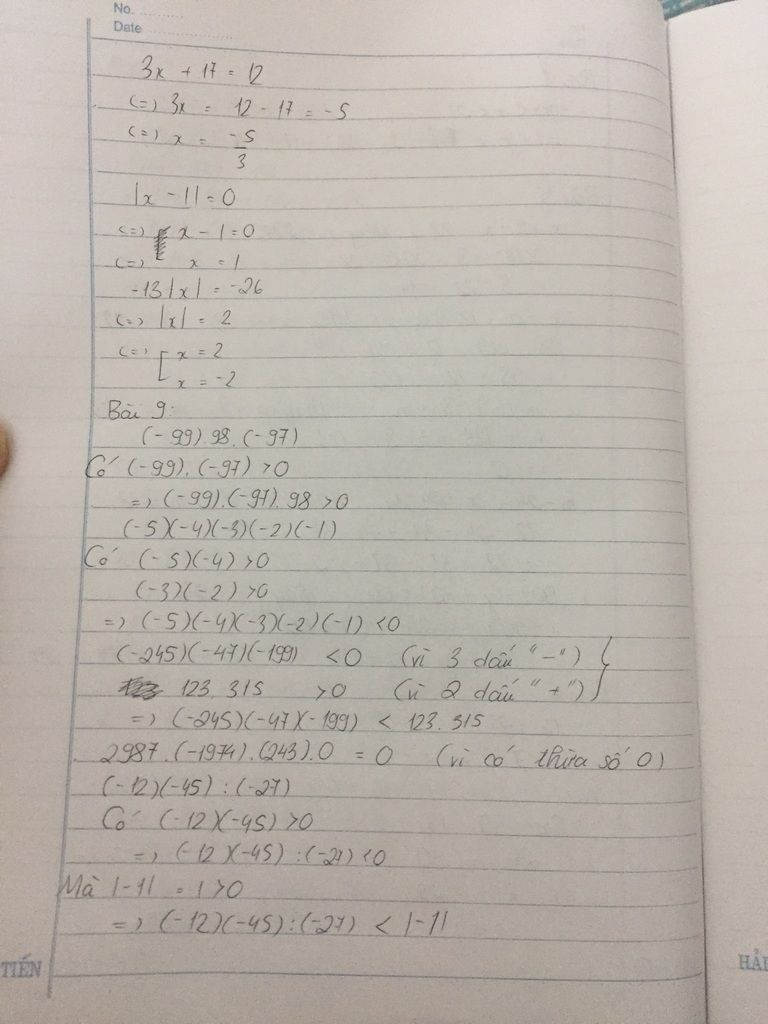 No. ..........
Date ..........
3x + 17 = 12
(=) 3x = 12 - 17 = -5
(=) x = -5/3
|x - 1| = 0
(=) x - 1 = 0
(=) x = 1
-13|x| = -26
(=) |x| = 2
(=) [ x = 2
x = -2
Bài 9:
(-99).98.(-97)
Có (-99).(-97) >0
=) (-99).(-97).98 >0
(-5)(-4)(-3)(-2)(-1)
Có (-5)(-4) >0
(-3)(-2) >0
=) (-5)(-4)(-3)(-2)(-1) <0
(-245)(-47)(-199) <0 (vì 3 dấu "-") }
123.315 >0 (vì 2 dấu "+")
=) (-245)(-47)(-199) < 123.315
2987.(-1974).(243).0 = 0 (vì có thừa số 0)
(-12)(-45) : (-27)
Có (-12)(-45) >0
=) (-12)(-45) : (-27) <0
Mà |-1| = 1 >0
=) (-12)(-45) : (-27) < |-1|
TIẾN
HẢI